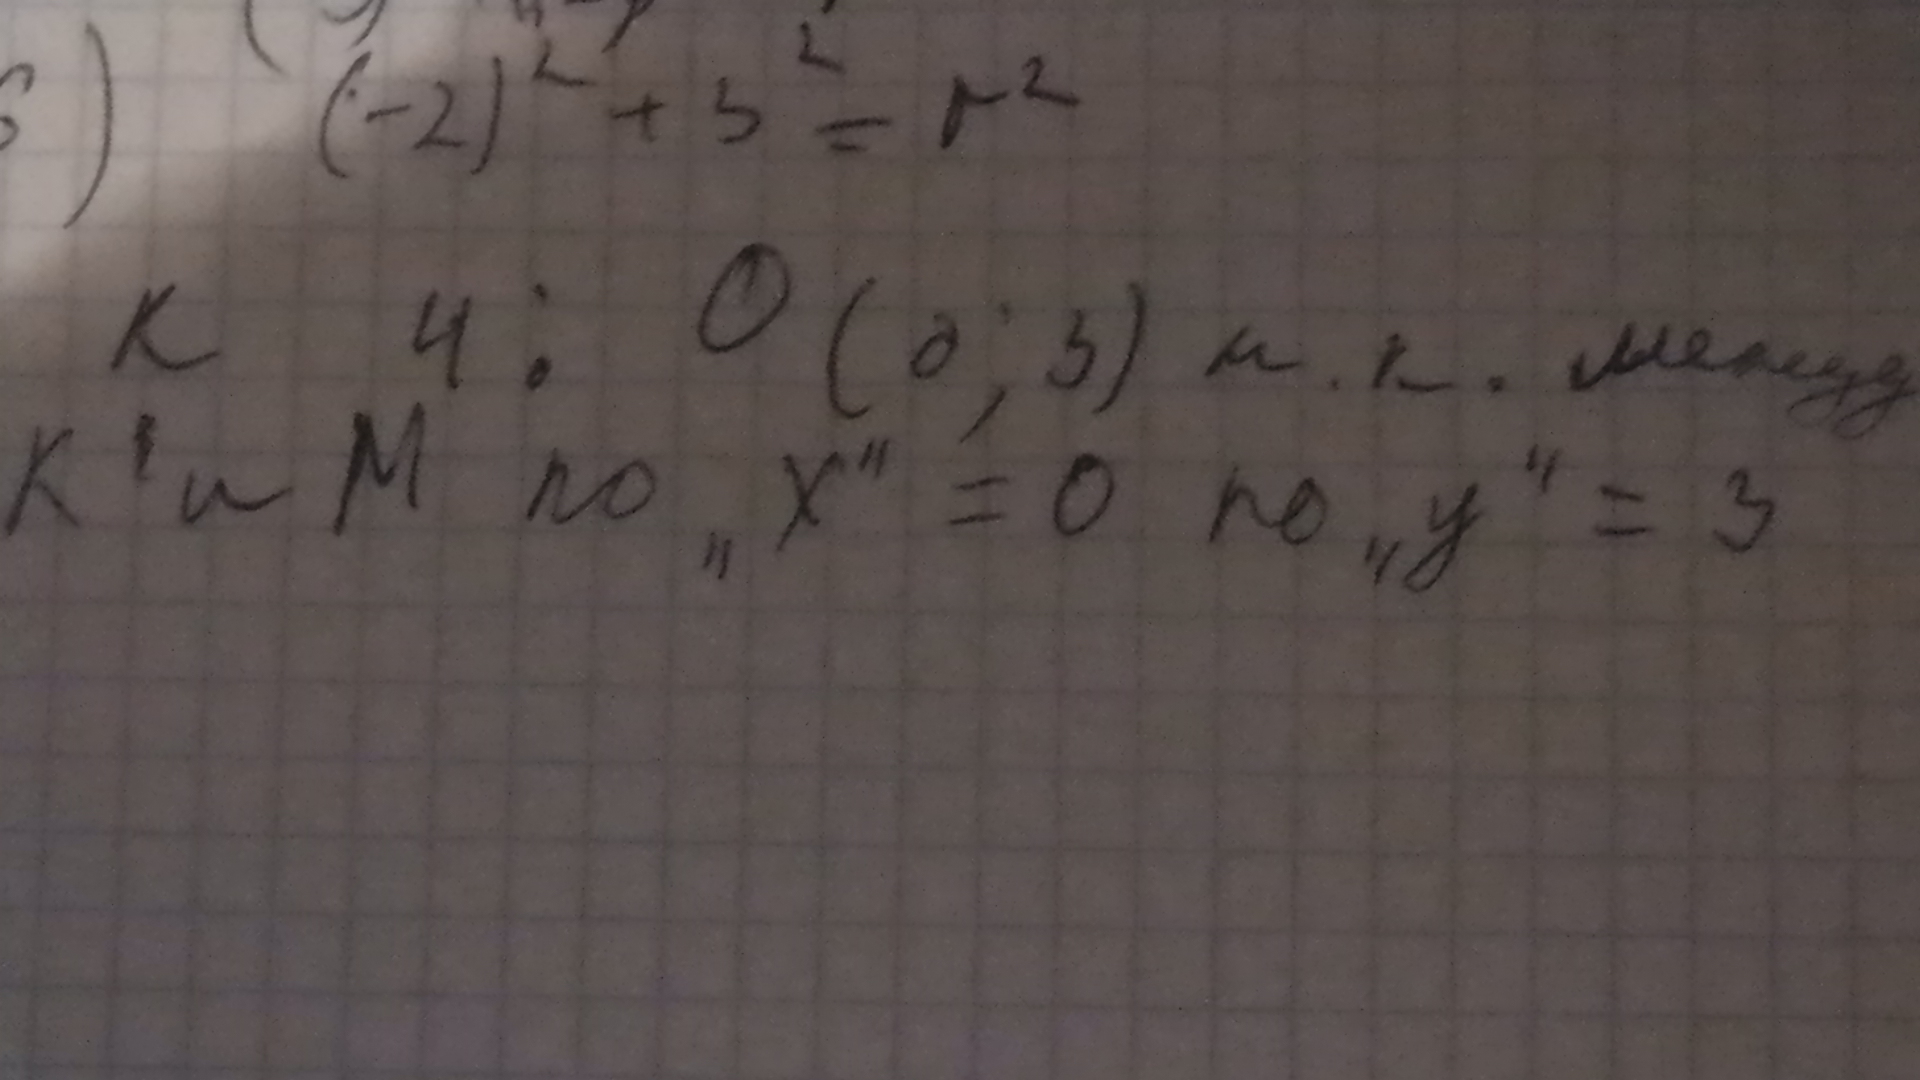 б) (-2)² + 3² = r²
К 4: О (0; 3) т.к. между
К' и М по „х" = 0 по „у" = 3